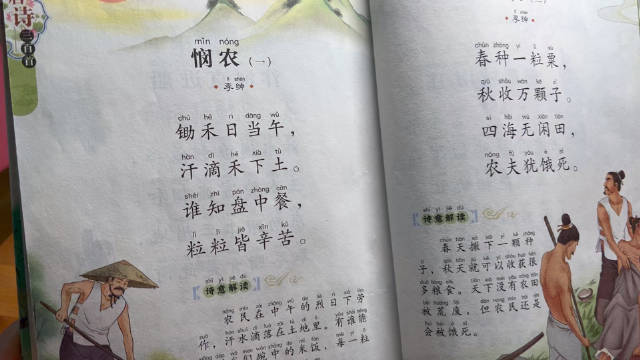 唐诗三百首
mǐn nóng
悯农(一)
lǐ shēn
李绅
chú hé rì dāng wǔ
锄禾日当午，
hàn dī hé xià tǔ
汗滴禾下土。
shéi zhī pán zhōng cān
谁知盘中餐，
lì lì jiē xīn kǔ
粒粒皆辛苦。
shī yì jiě dú
诗意解读
农民在中午的烈日下劳
作，汗水滴落在土地里。有谁
盘碗中的米饭，每一粒
lǐ shēn
李绅
chūn zhòng yí lì sù
春种一粒粟，
qiū shōu wàn kē zǐ
秋收万颗子。
四海无闲田，
农夫犹饿死。
shī yì jiě dú
诗意解读
春天播下一颗种
子，秋天就可以收获很
多粮食。天下没有农田
被荒废，但农民还是
会被饿死。